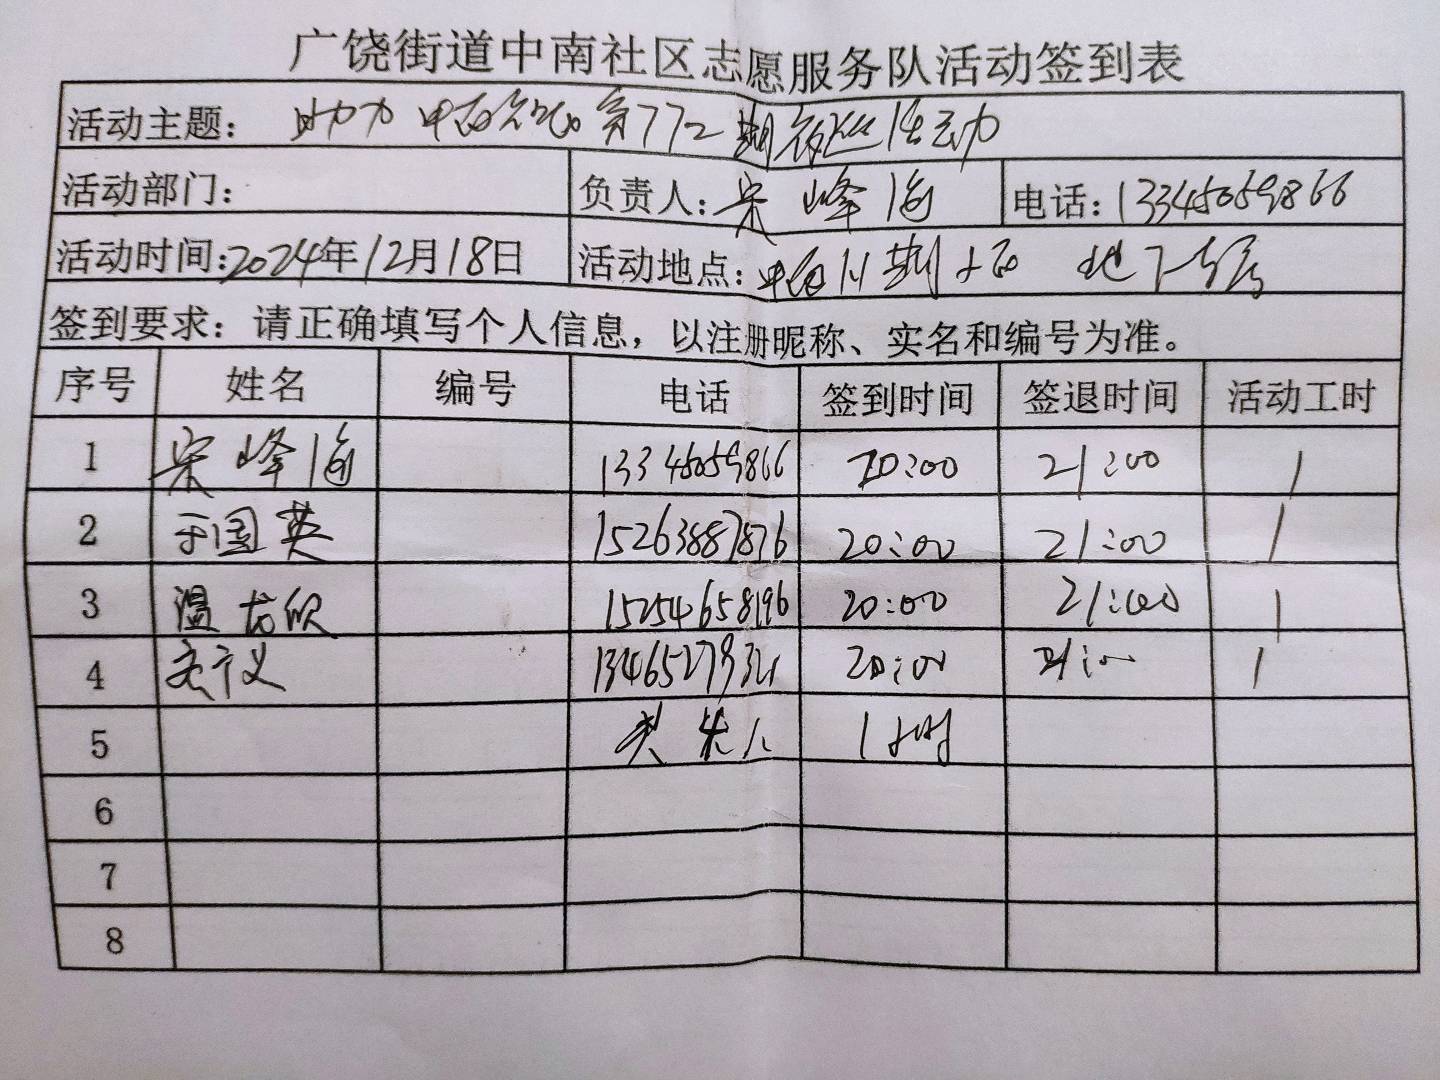 广饶街道中南社区志愿服务队活动签到表
活动主题: 助力 中南 第772期夜巡活动
活动部门:
负责人: 宋峰
电话: 13345059866
活动时间: 2024年12月18日
活动地点: 中南 期 地下
签到要求: 请正确填写个人信息, 以注册昵称、实名和编号为准。
序号 姓名 编号 电话 签到时间 签退时间 活动工时
1 宋峰 13345059866 20:00 21:00 1
2 于国英 15263887876 20:00 21:00 1
3 温 欣 15254658196 20:00 21:00 1
4 义 13465279321 20:00 21:00 1
5 共 人 1小时
6
7
8